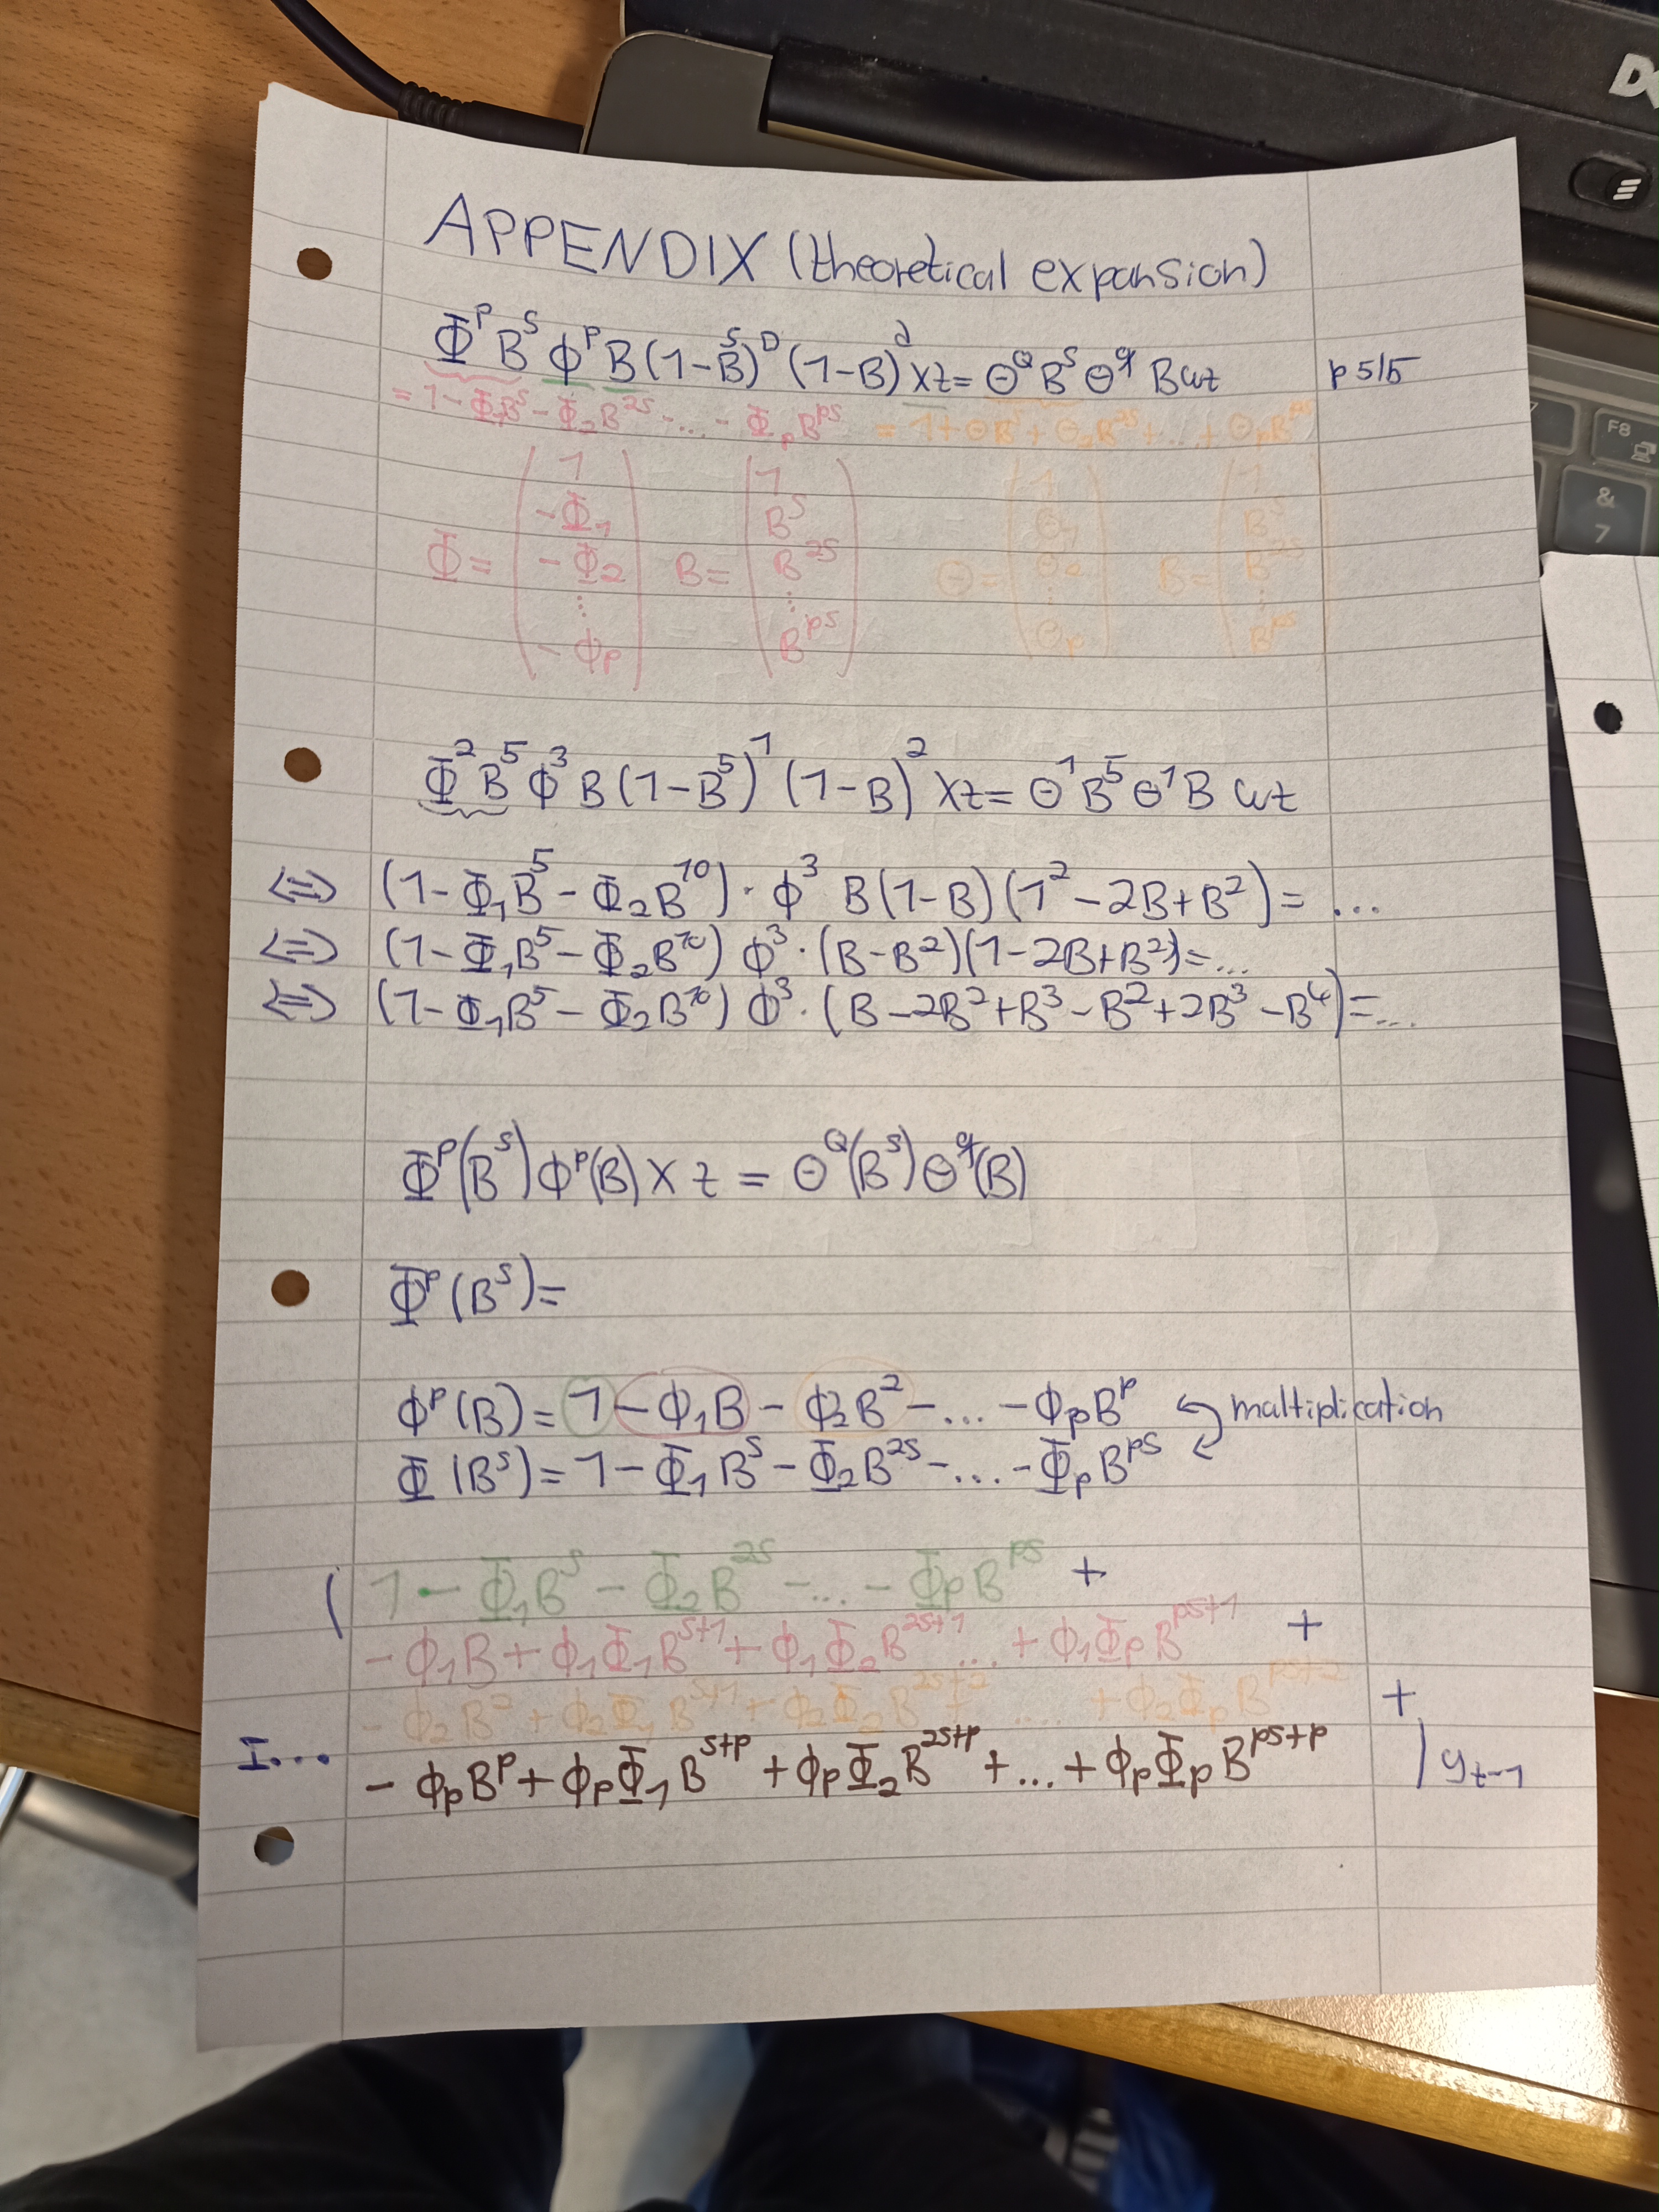 DE
F8
&
7
APPENDIX (theoretical expansion)
Φ^P B^S ϕ^p B (1-B^S)^D (1-B)^d xt = Θ^Q B^S θ^q B ωt
p 5/5
= 1 - Φ₁B^S - Φ₂B^2S - ... - Φ_P B^PS = 1 + ΘB^S + Θ₂B^2S + ... + Θ_P B^PS
Φ = ( 1 -Φ₁ -Φ₂ ⋮ -ϕ_P ) B = ( 1 B^S B^2S ⋮ B^PS ) Θ = ( 1 Θ₁ Θ₂ ⋮ Θ_P ) B = ( 1 B^S B^2S ⋮ B^PS )
Φ^2 B^5 ϕ^3 B (1-B^5)^1 (1-B)^2 xt = Θ^1 B^5 θ^1 B ωt
<=> (1 - Φ₁B^5 - Φ₂B^10) · ϕ^3 B(1-B)(1^2 - 2B + B^2) = ...
<=> (1 - Φ₁B^5 - Φ₂B^10) ϕ^3 · (B-B^2)(1-2B+B^2) = ...
<=> (1 - Φ₁B^5 - Φ₂B^10) ϕ^3 · (B - 2B^2 + B^3 - B^2 + 2B^3 - B^4) = ...
Φ^P(B^S) ϕ^p(B) x t = Θ^Q(B^S) θ^q(B)
Φ^P (B^S) =
ϕ^p (B) = 1 - ϕ₁B - ϕ₂B^2 - ... - ϕ_p B^p maltiplication
Φ (B^S) = 1 - Φ₁B^S - Φ₂B^2S - ... - Φ_P B^PS
( 1 - Φ₁B^S - Φ₂B^2S - ... - Φ_P B^PS +
- ϕ₁B + ϕ₁Φ₁B^S+1 + ϕ₁Φ₂B^2S+1 ... + ϕ₁Φ_P B^PS+1 +
- ϕ₂B^2 + ϕ₂Φ₁B^S+1 + ϕ₂Φ₂B^2S+2 ... + ϕ₂Φ_P B^PS+2 +
I... - ϕ_p B^p + ϕ_pΦ₁B^S+p + ϕ_pΦ₂B^2S+p + ... + ϕ_pΦ_P B^PS+p ) y_t-1